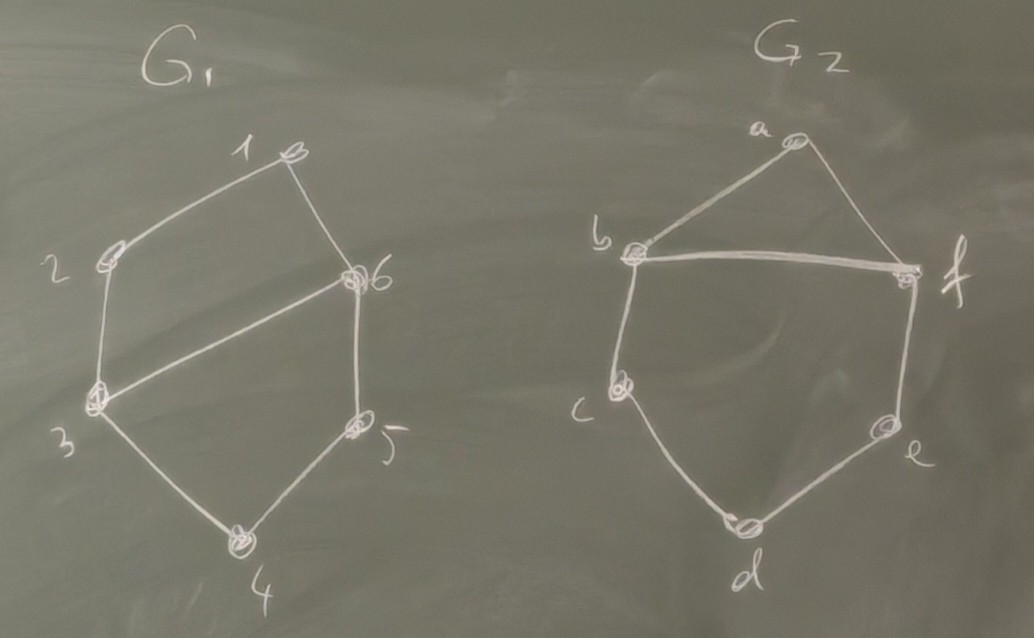 G₁
1
2
6
3
5
4
G₂
a
b
f
c
e
d